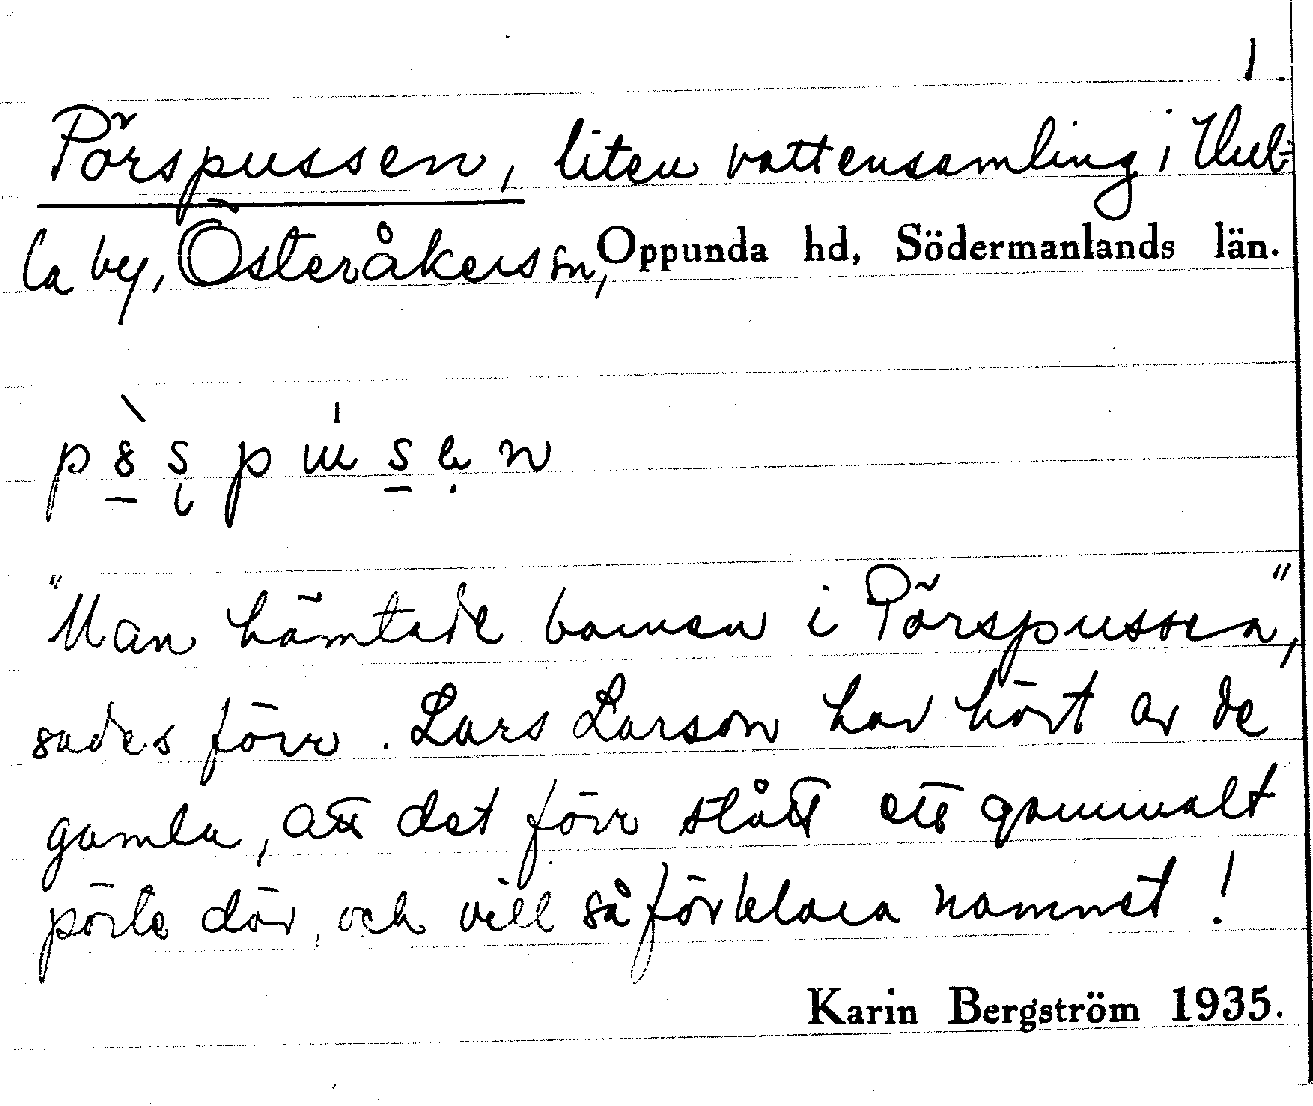 1.
Pörspussen, liten vattensamling i Hul-
la by, Österåkers sn, Oppunda hd, Södermanlands län.
"Man hämtade barnen i Pörspussen",
sades förr. Lars Larson har hört av de
gamla, att det förr stått ett gammalt
pörte där, och vill så förklara namnet!
Karin Bergström 1935.